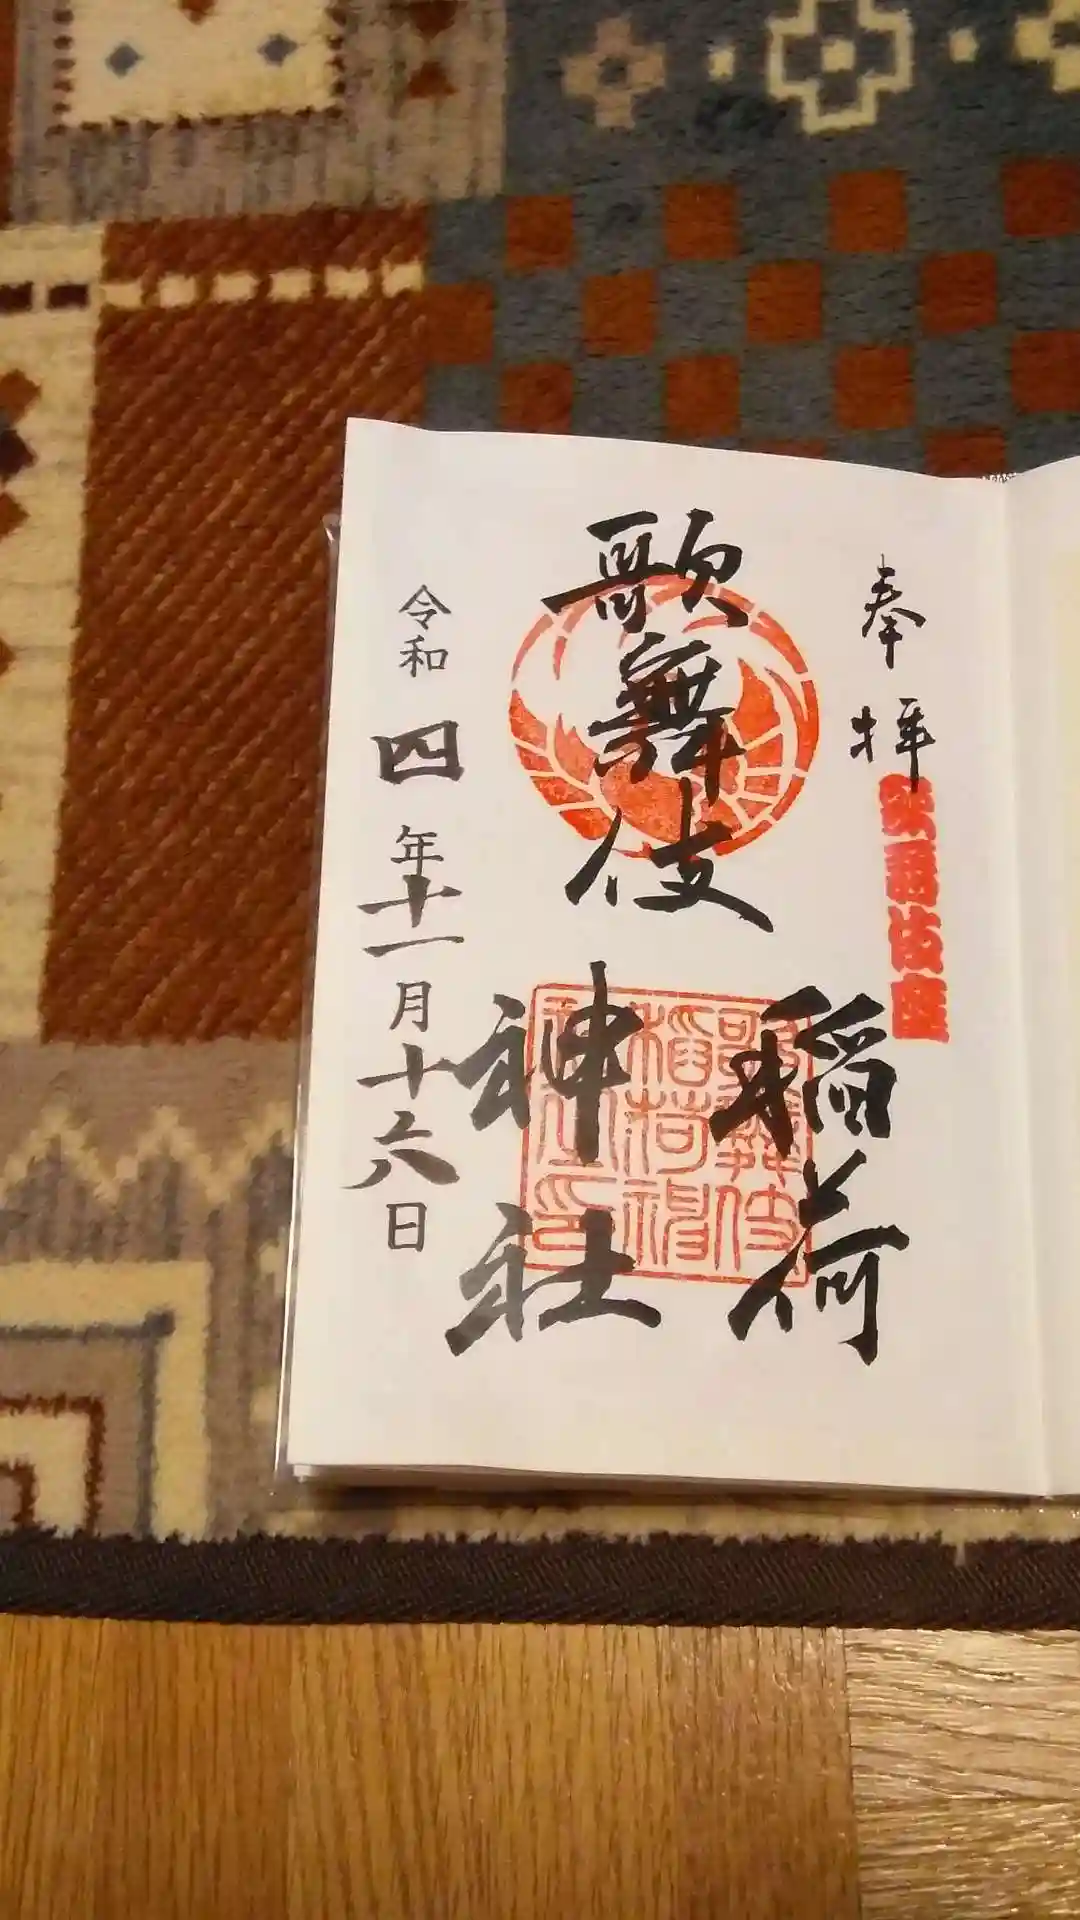 奉拝
歌舞伎座
歌舞伎
稲荷
神社
歌舞伎
稲荷神
社之印
令和四年十一月十六日